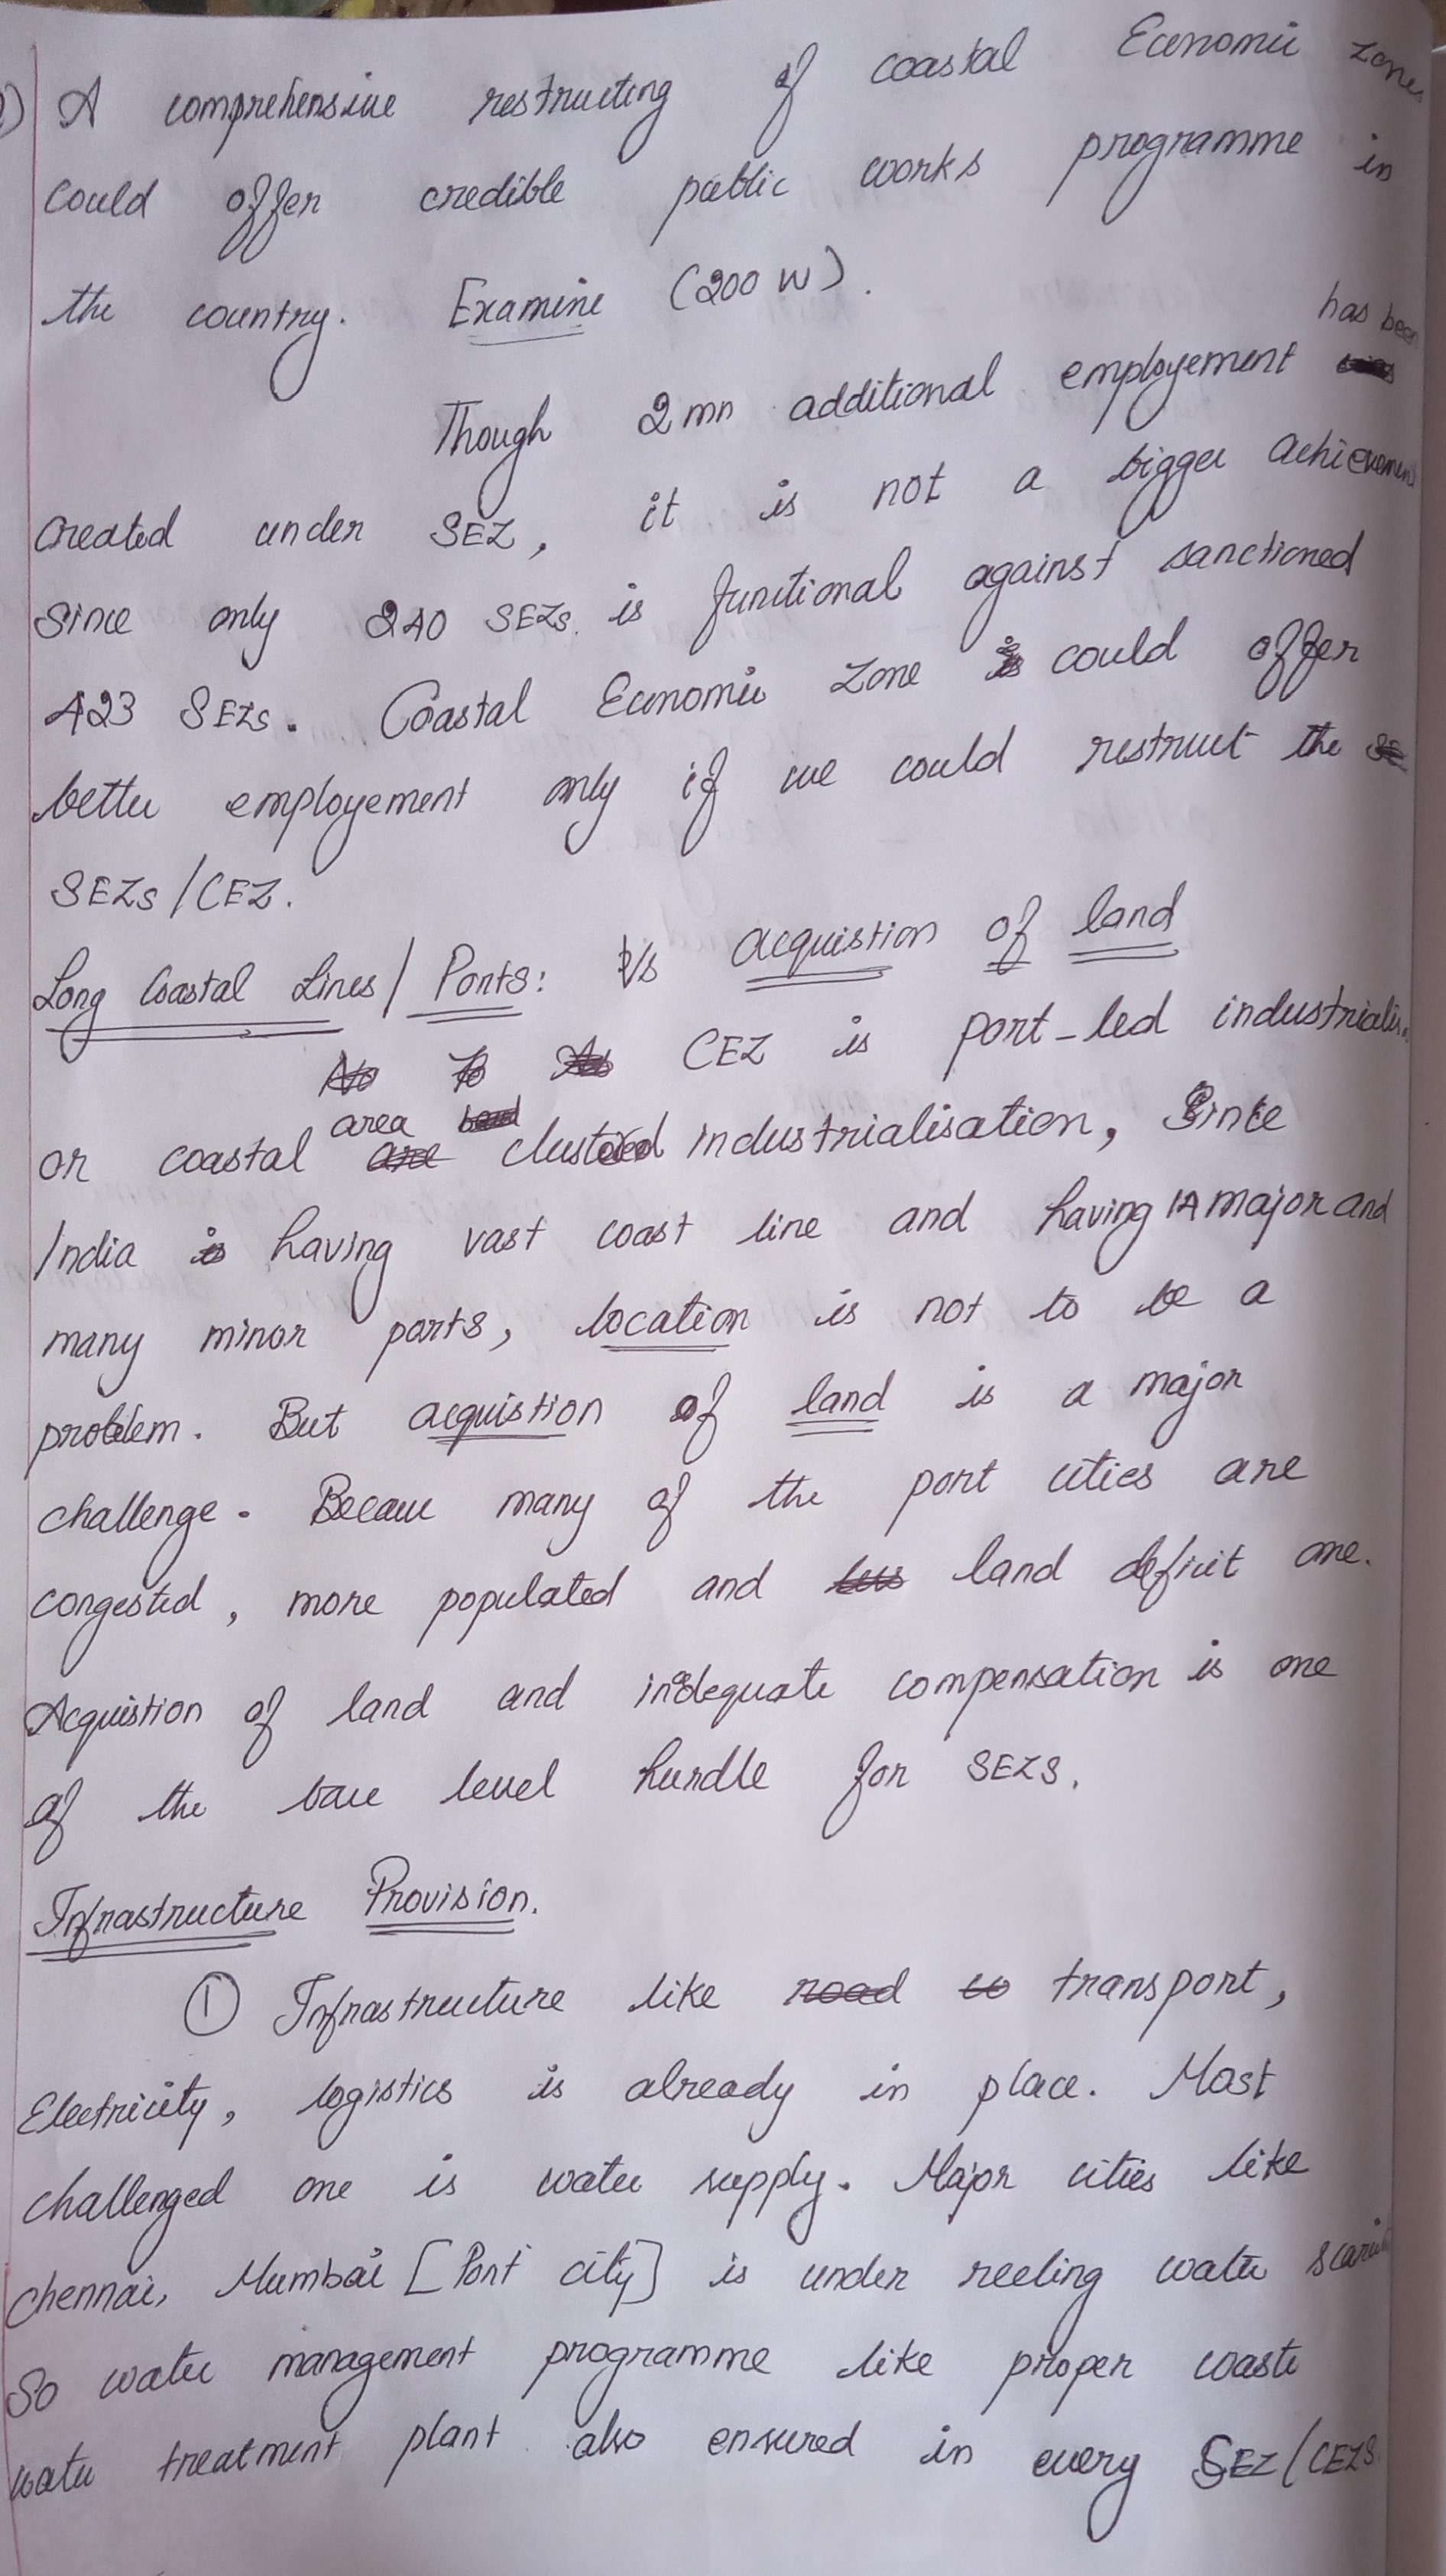 A comprehensive restructing of coastal Economic Zones
could offer credible public works programme in
the country. Examine (200 W).
has been
Though 2 mn additional employement
created under SEZ, it is not a bigger achievement
since only 240 SEZs. is functional against sanctioned
423 SEZs. Coastal Economic Zone could offer
better employement only if we could restruct the
SEZs/CEZ.
Long Coastal Lines/ Ports: V/s acquistion of land
No To As CEZ is port-led industrialis.
area
or coastal are clustered industrialisation, Since
India is having vast coast line and having 14 major and
many minor ports, location is not to be a
problem. But acquistion of land is a major
challenge. Because many of the port cities are
congested, more populated and less land deficit one.
Acquistion of land and inadequate compensation is one
of the base level hurdle for SEZS.
Infrastructure Provision.
① Infrastructure like road to transport,
Electricity, logistics is already in place. Most
challenged one is water supply. Major cities like
Chennai, Mumbai [Port city] is under reeling water scarcity
So water management programme like proper waste
water treatment plant also ensured in every SEZ/CEZS